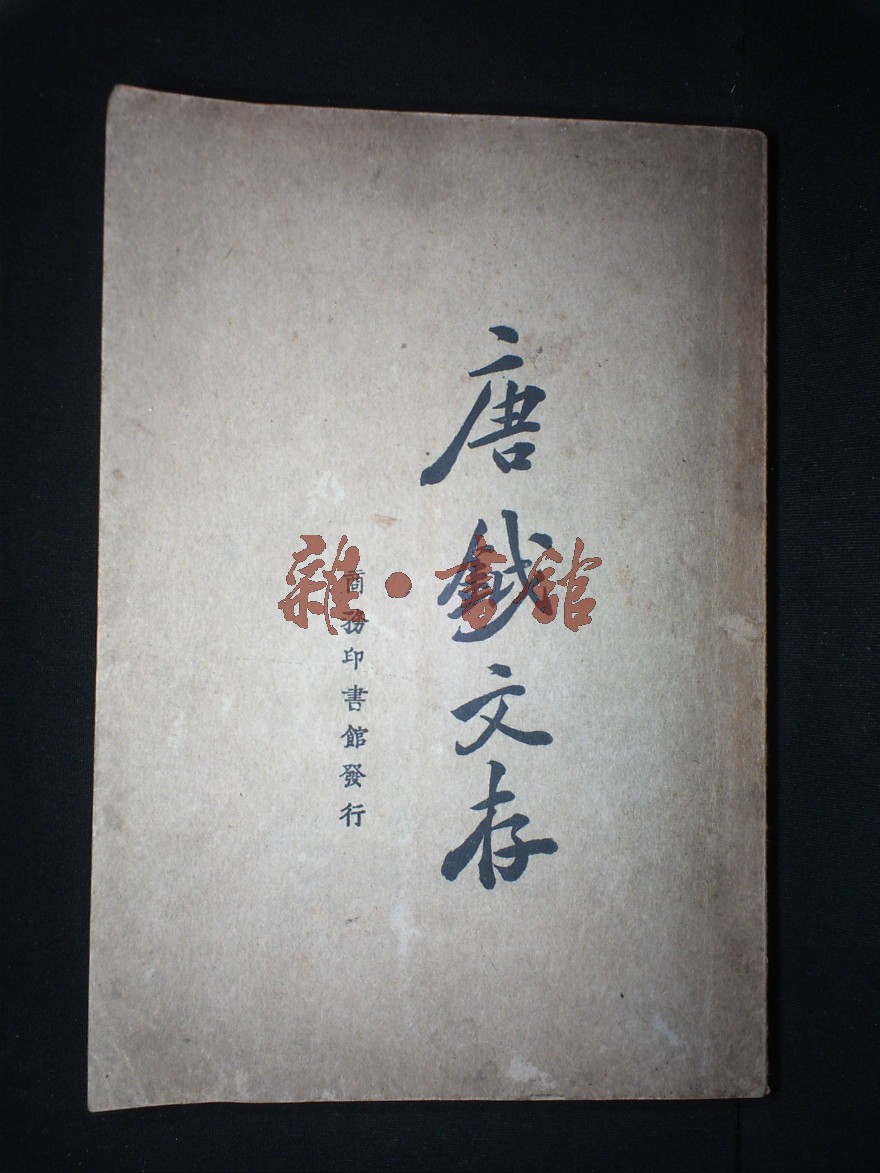 唐鉞文存
商務印書館發行
雜·書館